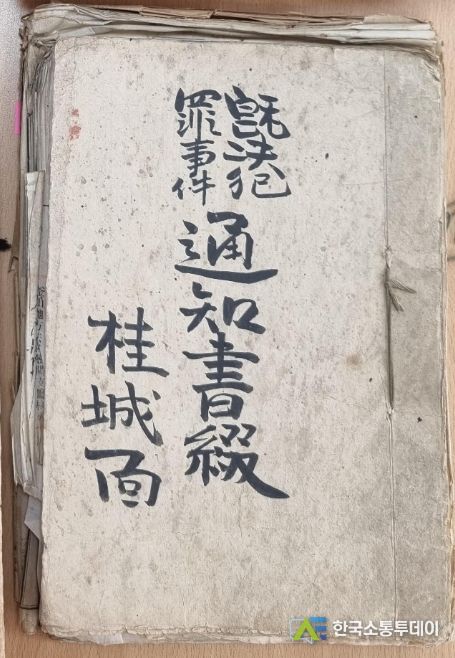 既決犯
罪事件
通知書綴
桂城面
한국소통투데이